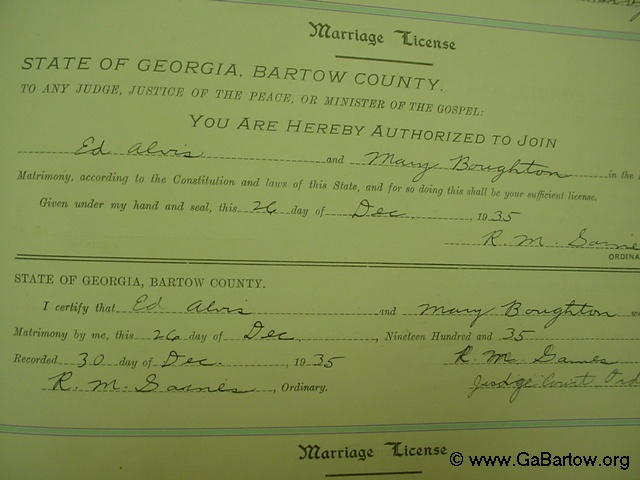 Marriage License
STATE OF GEORGIA, BARTOW COUNTY.
TO ANY JUDGE, JUSTICE OF THE PEACE, OR MINISTER OF THE GOSPEL:
YOU ARE HEREBY AUTHORIZED TO JOIN
Ed Alvis and Mary Boughton in the
Matrimony, according to the Constitution and laws of this State, and for so doing this shall be your sufficient license.
Given under my hand and seal, this 26 day of Dec, 1935
R. M. Gaines
ORDINA
STATE OF GEORGIA, BARTOW COUNTY.
I certify that Ed Alvis and Mary Boughton
Matrimony by me, this 26 day of Dec, Nineteen Hundred and 35
Recorded 30 day of Dec. 1935 R M Gaines
R. M. Gaines, Ordinary. Judge Court Ord
Marriage License
© www.GaBartow.org